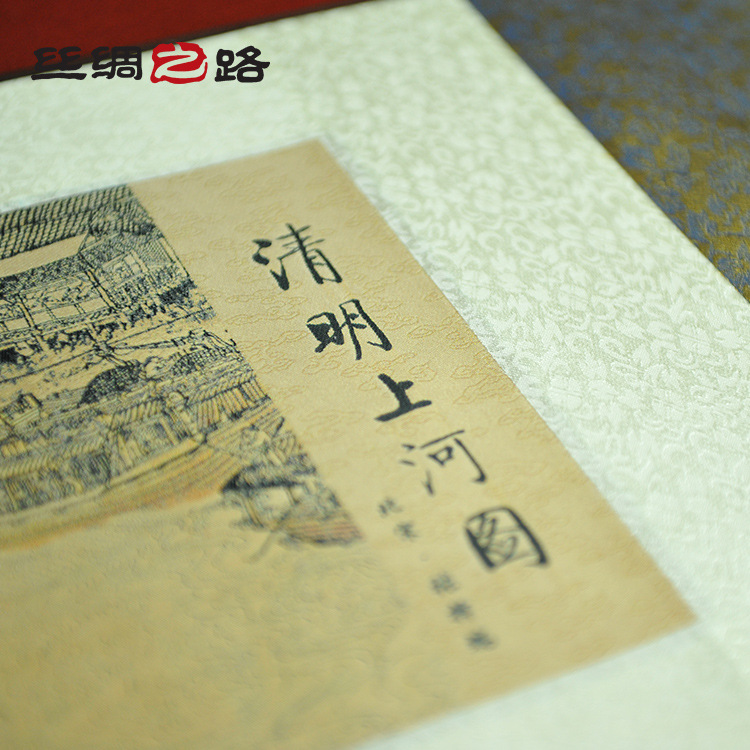 丝绸之路
清明上河图
北宋 张择端